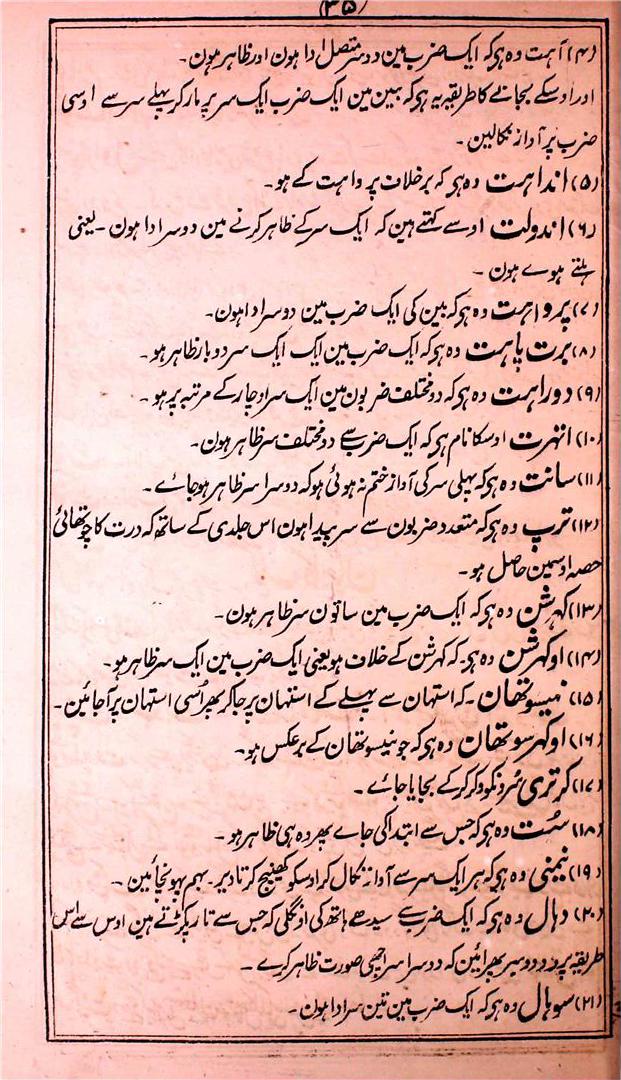 (۳۵)
(۴) آہت وہ ہی کہ ایک ضرب مین دو سر متصل ادا ہون اور ظاہر ہون۔
اور اوسکے بجانے کا طریقہ یہ ہی کہ بین مین ایک ضرب ایک سر پر مار کر پہلے سر سے اوسی
ضرب پر آواز نکالین۔
(۵) انداہت وہ ہی کہ برخلاف پرواہت کے ہو۔
(۶) اندولت اوسے کہتے ہین کہ ایک سر کے ظاہر کرنے مین دو سر ادا ہون۔ یعنی
ہلتے ہوے ہون۔
(۷) پرواہت وہ ہی کہ بین کی ایک ضرب مین دو سر ادا ہون۔
(۸) برت پاہت وہ ہی کہ ایک ضرب مین ایک ایک سر دو بار ظاہر ہو۔
(۹) دوراہت وہ ہی کہ دو مختلف ضربون مین ایک سر اوچار کے مرتبہ پر ہو۔
(۱۰) انہرت اوسکا نام ہی کہ ایک ضرب سے دو مختلف سر ظاہر ہون۔
(۱۱) سانت وہ ہی کہ پہلی سر کی آواز ختم نہ ہوئی ہو کہ دوسرا سر ظاہر ہو جاے۔
(۱۲) ترپ وہ ہی کہ متعدد ضربون سے سر پیدا ہون اس جلدی کے ساتھ کہ درت کا چوتھائی
حصہ اوسمین حاصل ہو۔
(۱۳) کہرشن وہ ہی کہ ایک ضرب مین ساتون سر ظاہر ہون۔
(۱۴) اوکہرشن وہ ہی۔ کہ کہرشن کے خلاف ہو یعنی ایک ضرب مین ایک سر ظاہر ہو۔
(۱۵) نیسوتھان۔ کہ استہان سے پہلے کے استہان پر جا کر پھر اُسی استہان پر آجائین۔
(۱۶) اوکہرسوتھان وہ ہی کہ جو نیسوتھان کے برعکس ہو۔
(۱۷) کرتری سُرونکو کر کرکے بجایا جاے۔
(۱۸) سٹت وہ ہی کہ جس سے ابتدا کی جاے پھر وہ ہی ظاہر ہو۔
(۱۹) نیمنی وہ ہی کہ ہر ایک سر سے آواز نکال کر اوسکو کھینچ کر تا دیر۔ بہم پہونچائین۔
(۲۰) دہال وہ ہی کہ ایک ضرب سے سیدھے ہاتھ کی اونگلی کہ جس سے تار پکڑتے ہین اوس سے اس
طریقہ پر دو سر پھرائین کہ دوسرا سر اچھی صورت ظاہر کرے۔
(۲۱) سوہال وہ ہی کہ ایک ضرب مین تین سر ادا ہون۔